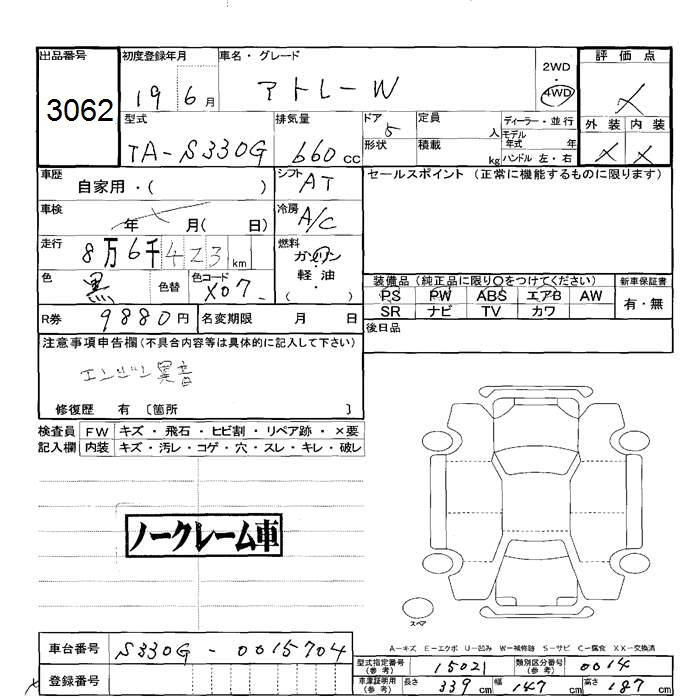 出品番号 初度登録年月 車名・グレード 2WD 評価点
3062 19 6月 アトレーW 4WD ×
型式 排気量 ドア 定員 ディーラー・並行 外装 内装
TA-S330G 660cc 5 人 モデル年式 年 × ×
形状 積載 kg ハンドル 左・右
車歴 自家用・( ) シフト AT セールスポイント (正常に機能するものに限ります)
車検 年 月( 日) 冷房 A/C
走行 8万6千423km 燃料 ガソリン
軽油
( )
色 黒 色替 色コード X07 装備品 (純正品に限り○をつけてください) 新車保証書
PS PW ABS エアB AW 有・無
SR ナビ TV カワ
R券 9880円 名変期限 月 日 後日品
注意事項申告欄(不具合内容等は具体的に記入して下さい)
エンジン異音
修復歴 有 〔箇所 〕
検査員 FW キズ・飛石・ヒビ割・リペア跡・×要
記入欄 内装 キズ・汚レ・コゲ・穴・スレ・キレ・破レ
ノークレーム車
スペア
A-キズ E-エクボ U-凹み W-補修跡 S-サビ C-腐食 XX-交換済
車台番号 S330G-0015704 型式指定番号(参考) 15021 類別区分番号(参考) 0014
登録番号 車庫証明用(参考) 長さ 339cm 幅 147cm 高さ 187cm